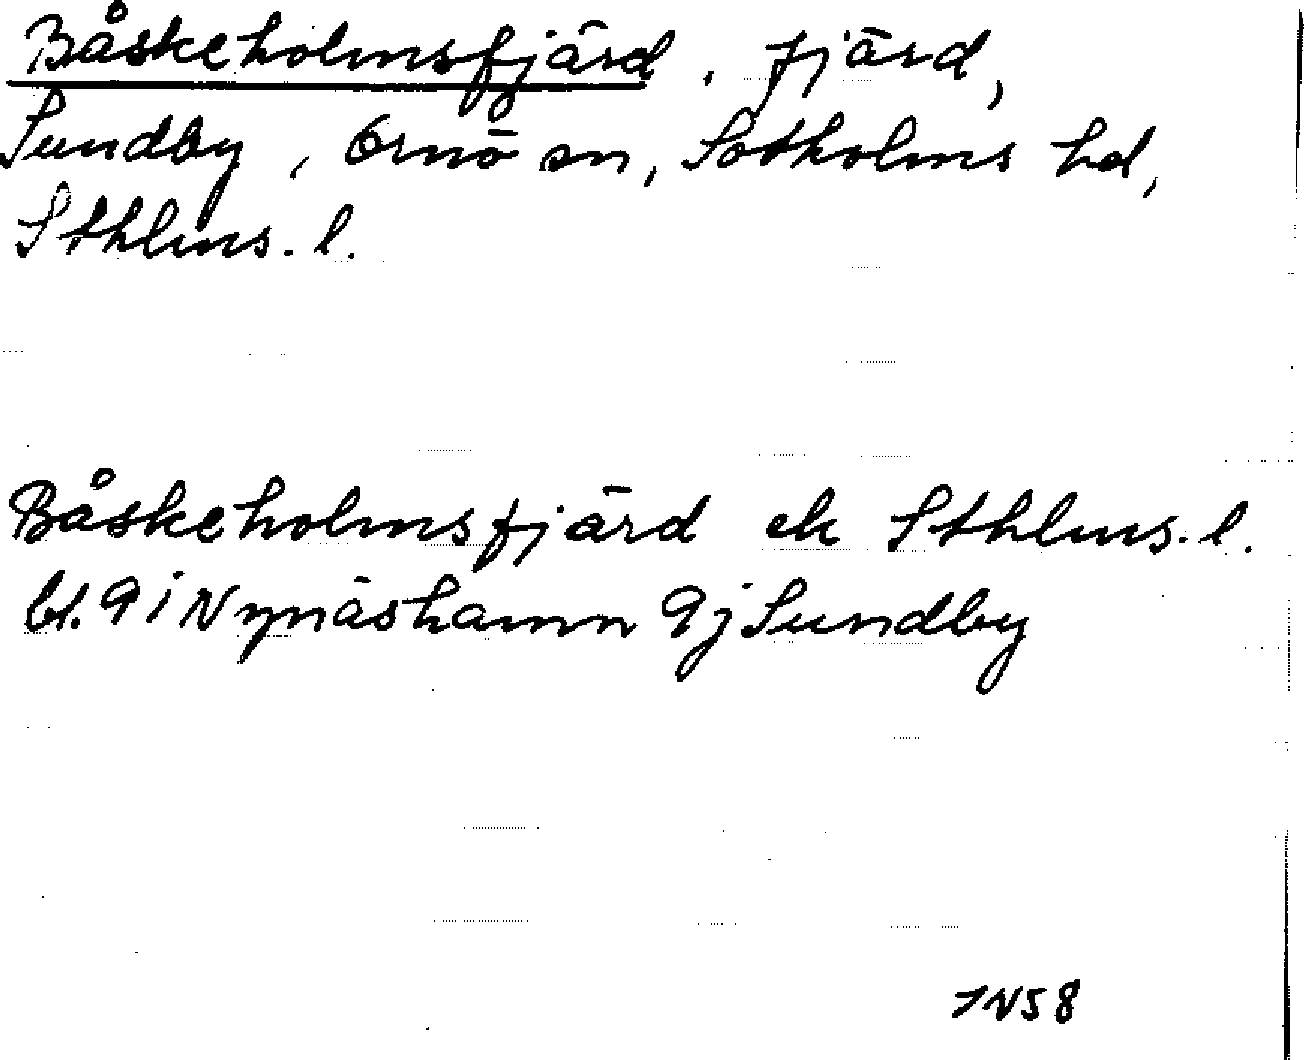 Båskeholmsfjärd, fjärd,
Sundby, Ornö sn, Sotholms hd,
Sthlms. l.
Båskeholmsfjärd ek Sthlms. l.
bl. 9 i Nynäshamn 9j Sundby
IN58